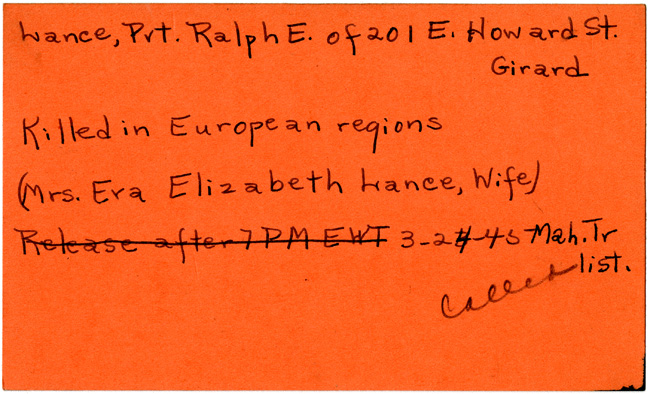 Lance, Pvt. Ralph E. of 201 E. Howard St.
Girard
Killed in European regions
(Mrs. Era Elizabeth Lance, Wife)
Release after 7 PM EWT 3-24-45 Mah. Tr
list.
Called